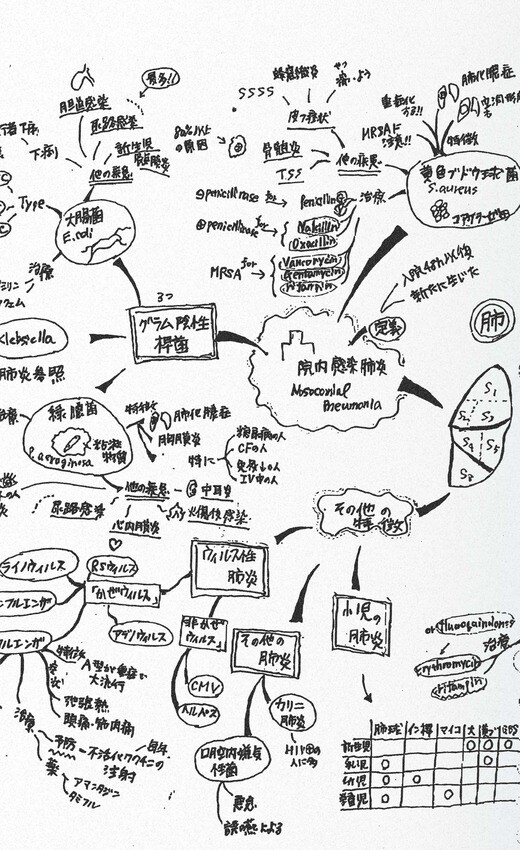 胆道感染
尿路感染
最多!!
新生児
髄膜炎
他の疾患
下痢
Type
大腸菌
E.coli
治療
3つ
グラム陰性
桿菌
Klebsiella
肺炎参照
緑膿菌
P.aeruginosa
粘液
物質
特徴
肺化膿症
胸膜炎
特に
糖尿病の人
CFの人
免疫↓の人
IV中の人
他の疾患
中耳炎
火傷後感染
尿路感染
心内膜炎
蜂窩織炎
SSSS
皮フ症状
80%以上
の原因
骨髄炎
TSS
他の疾患
重症化
する!!
MRSAに
注意!!
肺化膿症
特徴
黄色ブドウ球菌
S.aureus
コアグラーゼ⊕
治療
⊖penicillinase
for
penicillin G
⊕penicillinase
for
Nafcillin
Oxacillin
MRSA
for
Vancomycin
Gentamycin
Rifampin
入院48h以後
新たに生じた
定義
院内感染肺炎
Nosocomial
Pneumonia
肺
S1
S2
S3
S4
S5
その他の
特徴
ウィルス性
肺炎
ライノウィルス
RSウィルス
「かぜウィルス」
アデノウィルス
非かぜ
ウィルス」
CMV
ヘルペス
特徴
A型が重症で
大流行
症状
弛張熱
頭痛・筋肉痛
治療
予防
不活化ワクチンの
注射
毎年
薬
アマンタジン
タミフル
その他の
肺炎
カリニ
肺炎
HIV⊕の
人に多
口腔内嫌気
性菌
悪臭
誤嚥による
小児の
肺炎
or fluoroquinolones
治療
erythromycin
rifampin
肺球 イン桿 マイコ 大 黄ブ GBS
新生児 ○ ○ ○
乳児 ○ ○
幼児 ○ ○
学童児 ○ ○